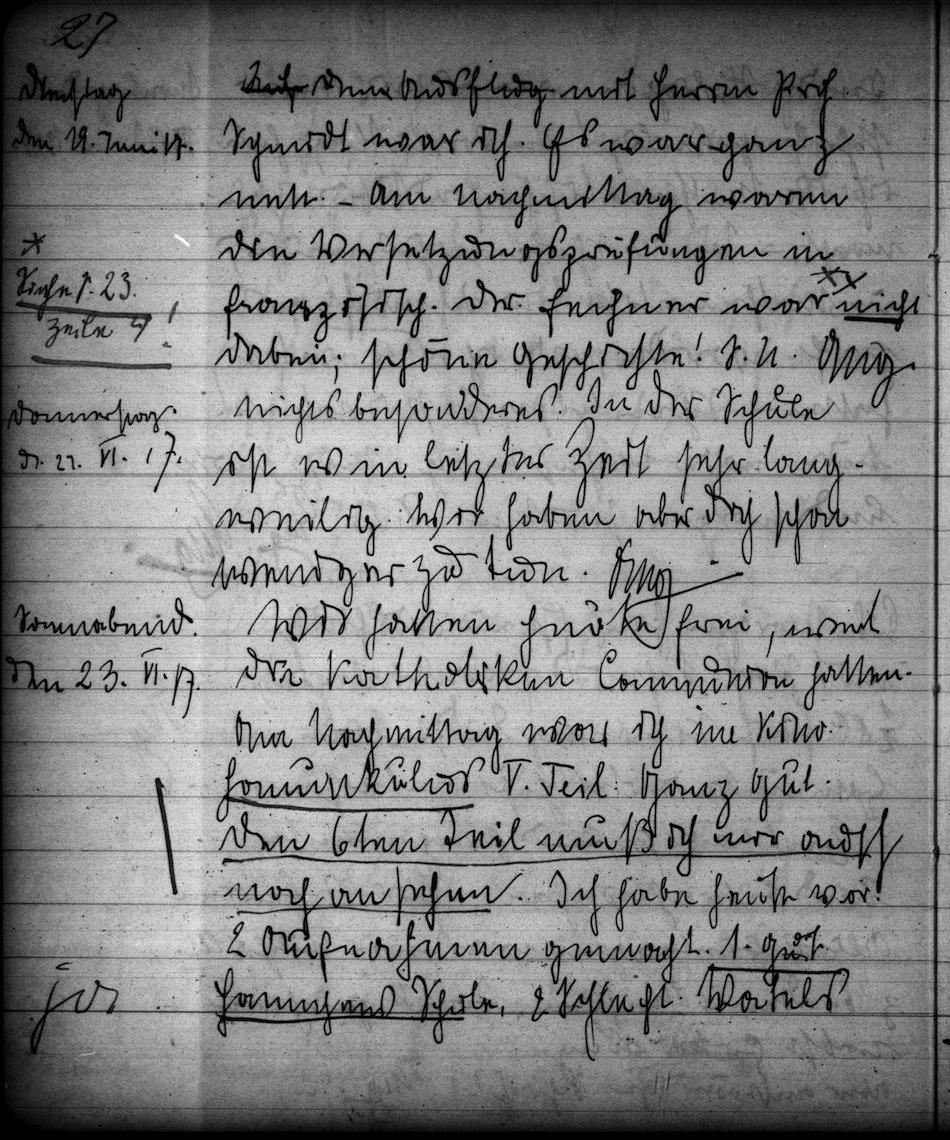 27
Dienstag
den 19. Juni 17.
Auf dem Ausflug mit Herrn Prof.
Schmidt war ich. Es war ganz
nett. – Am Nachmittag waren
die Versetzungsprüfungen in
französisch. Der Fechner war nicht
dabei; schöne Geschichte! S. U.
*
Siehe S. 23.
Zeile 4!
Donnerstag.
d. 21. VI. 17.
Nichts besonderes. In der Schule
ist es in letzter Zeit sehr lang-
weilig. Wir haben aber doch schon
weniger zu tun.
Sonnabend.
den 23. VI. 17.
Wir hatten heute frei, weil
die Katholiken Communion hatten.
Am Nachmittag war ich im Kino.
Homunkulus V. Teil. Ganz gut.
Den 6ten Teil muß ich mir auch
noch ansehen. Ich habe heute vor.
2 Aufnahmen gemacht. 1. gut.
Schule, 2 Schlecht.